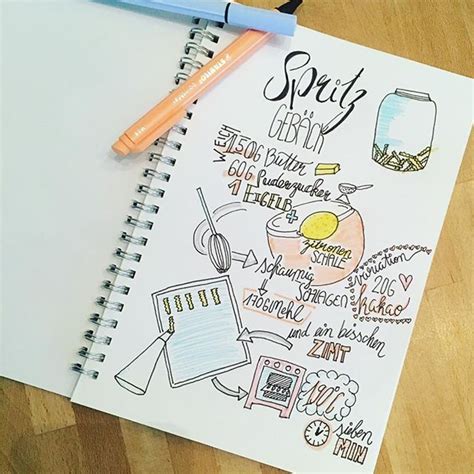 Spritz
GEBÄCK
WEICH
150G Butter
60G Puderzucker
1 EIGELB +
zitronen
SCHALE
schaumig
SCHLAGEN
170G mehl
variation
20G
kakao
und ein bisschen
ZIMT
sieben
MIN